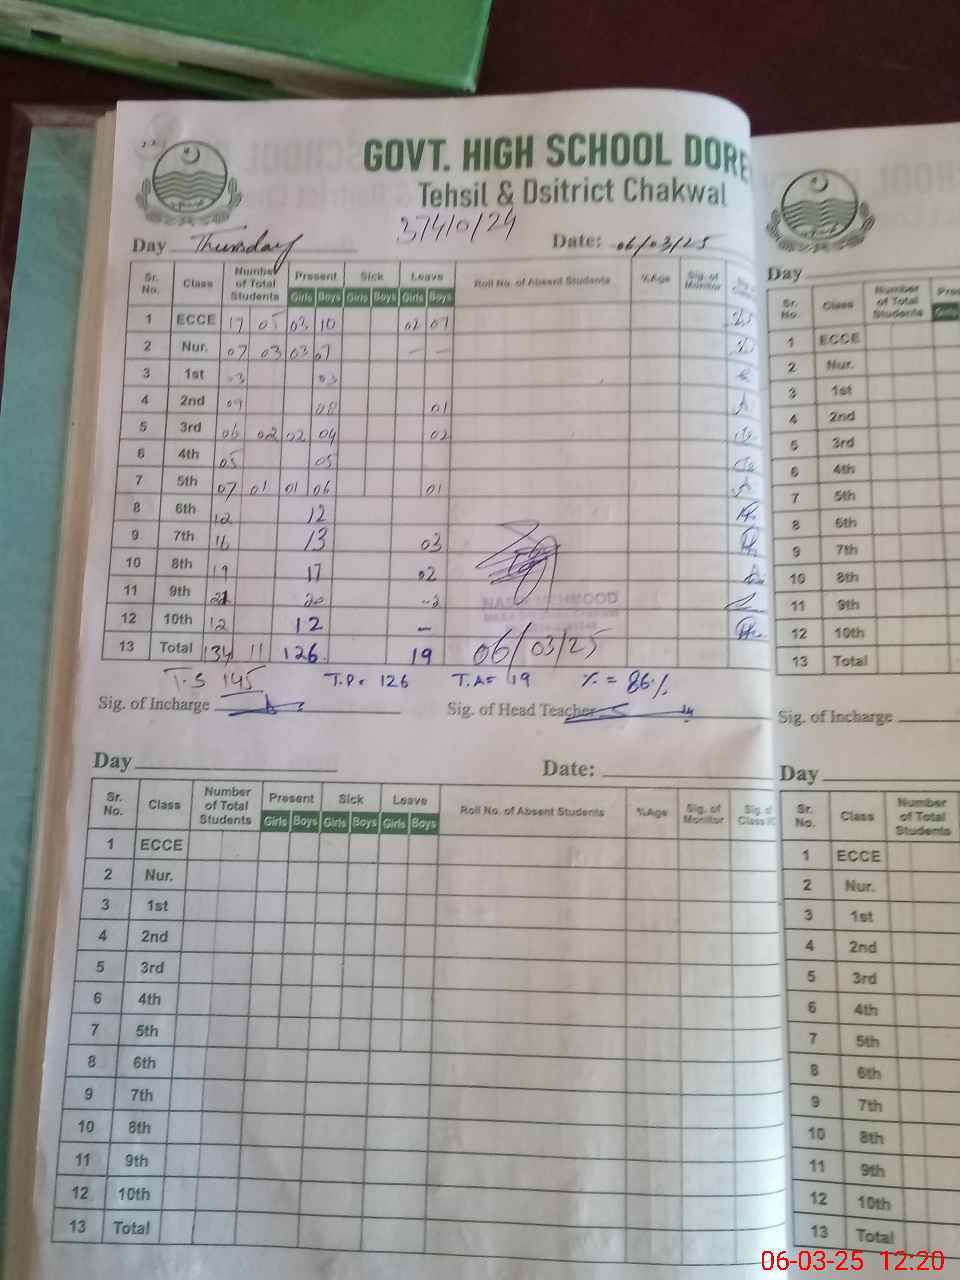 GOVT. HIGH SCHOOL DORE
Tehsil & Dsitrict Chakwal
37410124
Day Thursday Date: 06/03/25
Sr. No. Class Number of Total Students Present Sick Leave Roll No. of Absent Students %Age Sig. of Monitor
Girls Boys Girls Boys Girls Boys
1 ECCE 17 05 03 10 02 07
2 Nur. 07 03 03 07 — —
3 1st 03 03
4 2nd 09 08 01
5 3rd 06 02 02 04 02
6 4th 05 05
7 5th 07 01 01 06 01
8 6th 12 12
9 7th 16 13 03
10 8th 19 17 02
11 9th 20
12 10th 12 12 –
13 Total 134 11 126 19 06/03/25
T.S 145 T.P= 126 T.A= 19 %= 86%
Sig. of Incharge Sig. of Head Teacher
Day Date:
Sr. No. Class Number of Total Students Present Sick Leave Roll No. of Absent Students %Age Sig. of Monitor Sig. of Class
Girls Boys Girls Boys Girls Boys
1 ECCE
2 Nur.
3 1st
4 2nd
5 3rd
6 4th
7 5th
8 6th
9 7th
10 8th
11 9th
12 10th
13 Total
Day
Sr. No. Class Number of Total Students Pres
Girls
1 ECCE
2 Nur.
3 1st
4 2nd
5 3rd
6 4th
7 5th
8 6th
9 7th
10 8th
11 9th
12 10th
13 Total
Sig. of Incharge
Day
Sr. No. Class Number of Total Students
1 ECCE
2 Nur.
3 1st
4 2nd
5 3rd
6 4th
7 5th
8 6th
9 7th
10 8th
11 9th
12 10th
13 Total
06-03-25 12:20